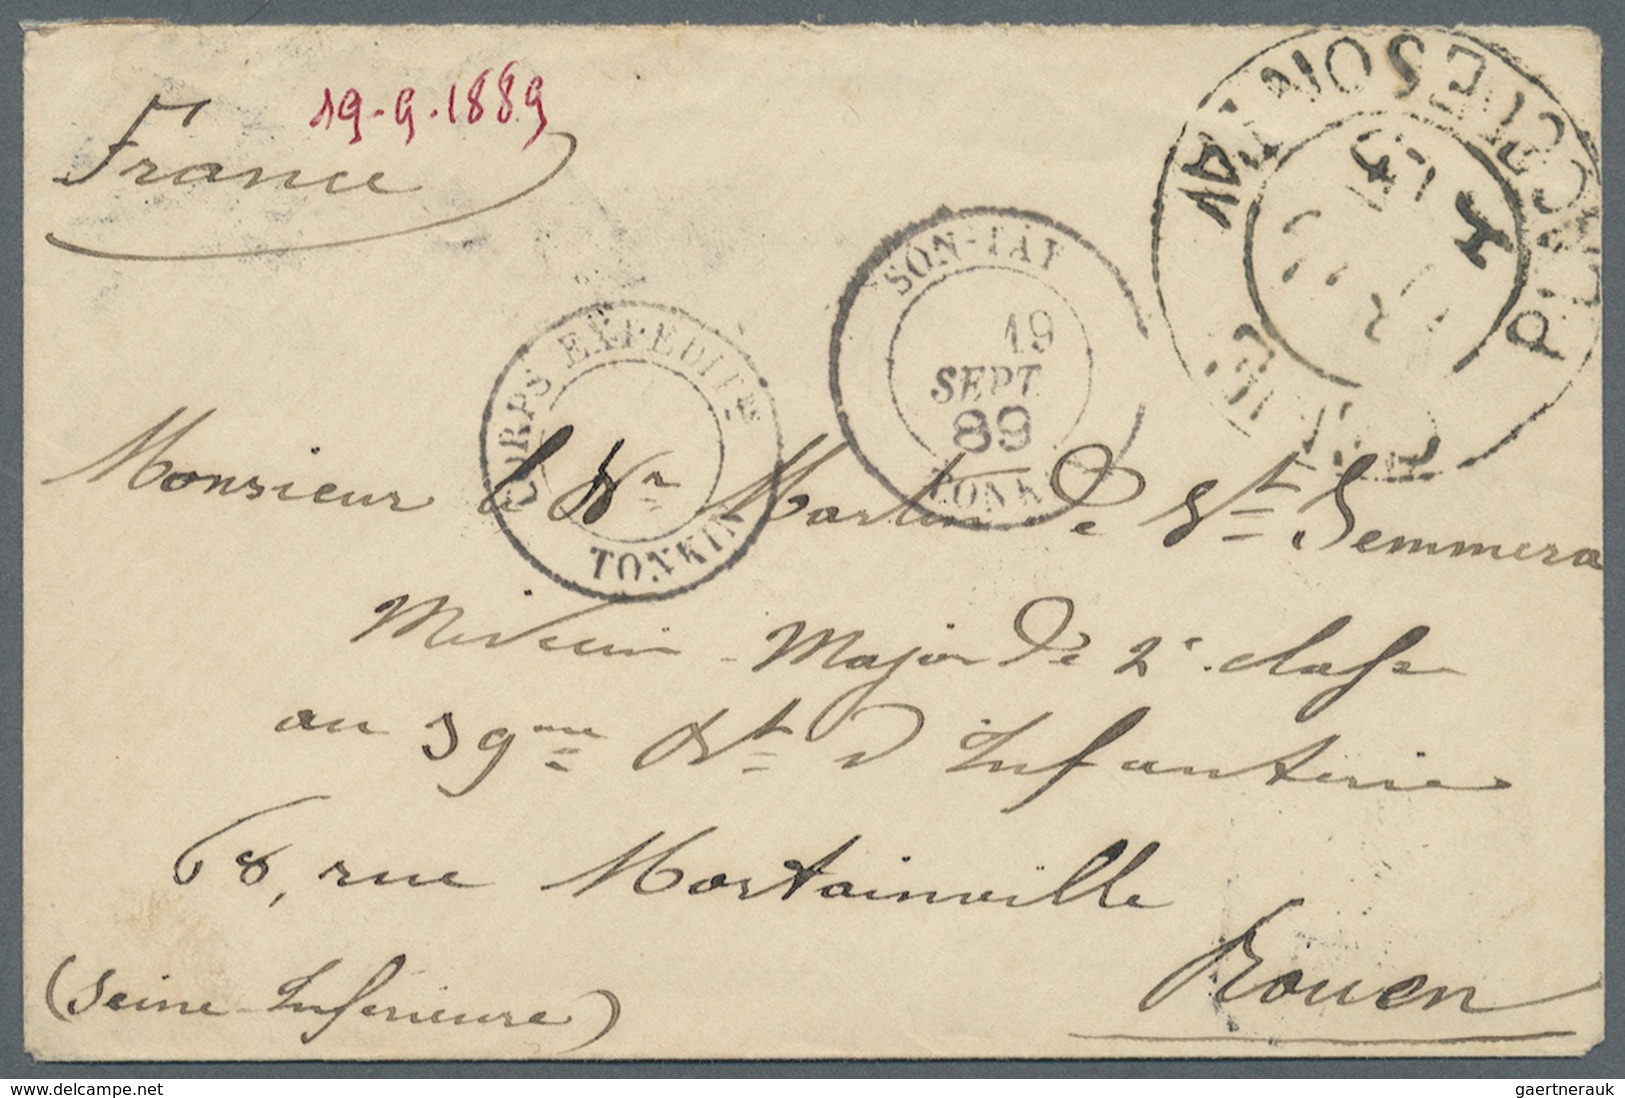 19-9-1889
France
PLACE DE SONTAY
SON-TAY
19
SEPT
89
TONKIN
CORPS EXPEDIT
TONKIN
Monsieur le Dr Martin de St Semmera
Médecin-Major de 2e classe
au 39me Rt d'Infanterie
68, rue Martainville
Rouen
(Seine-Inférieure)
www.delcampe.net
gaertnerauk